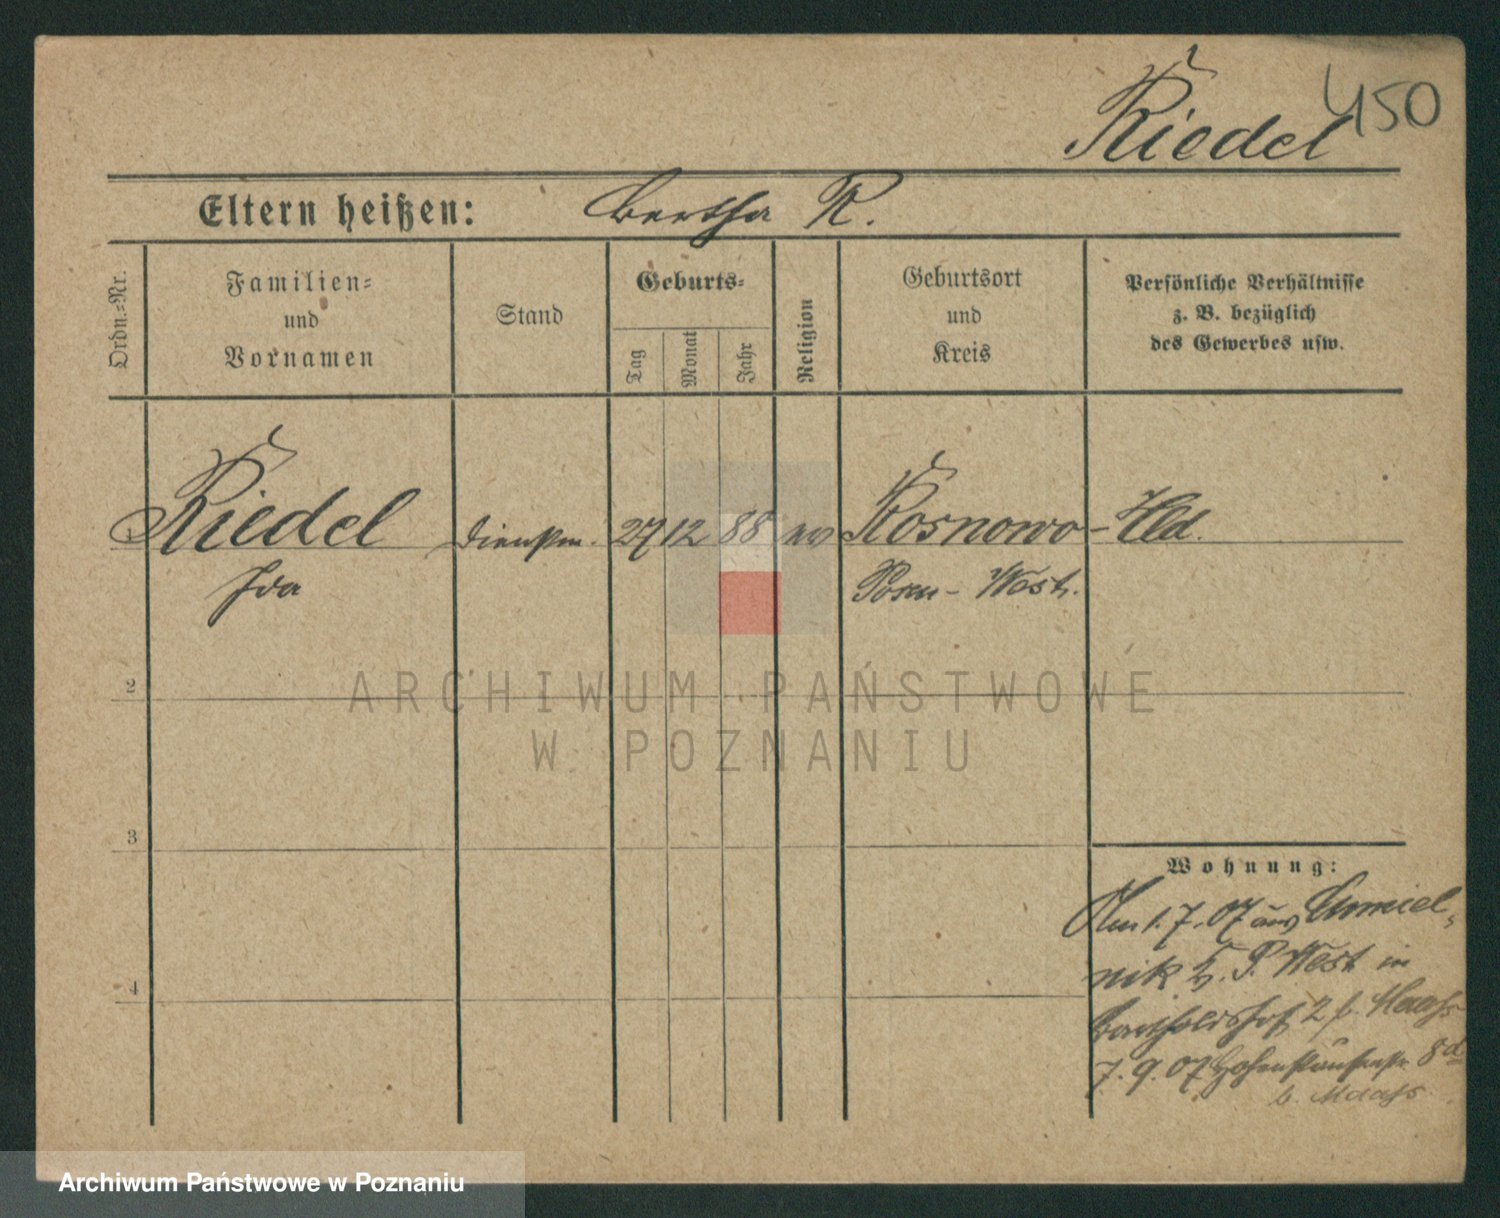 450
Riedel
Eltern heißen: Bertha R.
Ordn.=Nr.
Familien= und Vornamen
Stand
Geburts=
Tag
Monat
Jahr
Religion
Geburtsort und Kreis
Persönliche Verhältnisse z. B. bezüglich des Gewerbes usw.
Riedel Dienstm. 27 12 88 ev Rosnowo - Led.
Ida Posen - West.
2
ARCHIWUM PAŃSTWOWE
W POZNANIU
3
Wohnung:
Am 1.7.07 aus Chmiel-
nik Kr. P. West in
4
Bartholdshof 2 b. Maaß
7.9.07 Hohenstaufenstr. 8d
b. Maaß
Archiwum Państwowe w Poznaniu